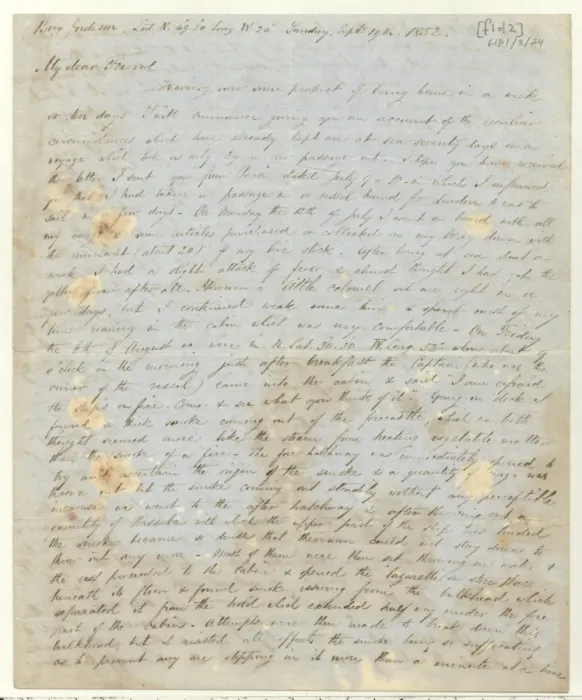 Brig Jordeson, Lat. N. 49° 30' Long. W. 20° Sunday, Septr 19th. 1852. [f1of2]
WP1/3/24
My dear Friend
Having now some prospect of being home in a week
or ten days I will commence giving you an account of the peculiar
circumstances which have already kept me at sea seventy days on a
voyage which took us only 29 on our passage out. I hope you have received
the letter I sent you from Pará dated July 9 or 10 in which I informed
you that I had taken a passage in a vessel bound for London & was to
sail in a few days - On Monday the 12th of July I went on board with all
my cargo & some articles purchased or collected on my way down with
the remnant (about 20) of my live stock. After being at sea about a
week I had a slight attack of fever & almost thought I had got the
yellow fever after all. However a little calomel set me right in a
few days, but I continued weak some time & spent most of my
time reading in the cabin which was very comfortable - On Friday
the 6th of August we were in N. Lat. 30.30 W Long. 52° when about 9
o'clock in the morning just after breakfast the Captain (who was the
owner of the vessel) came into the cabin & said I am afraid
the ship's on fire. Come & see what you think of it. Going on deck I
found a thick smoke coming out of the forecastle, which we both
thought seemed more like the steam from heating vegetable matter
than the smoke of a fire - The fore hatchway was immediately opened to
try and ascertain the origin of the smoke & a quantity of cargo was
thrown out but the smoke coming out steadily without any perceptible
increase we went to the after hatchway & after throwing out a
quantity of Piassaba with which the upper part of the ship was loaded
the smoke became so dense that the men could not stay down to
throw out any more - Most of them were then set throwing in water &
the rest proceeded to the cabin & opened the lazarette or store place
beneath its floor & found smoke issuing from the bulkhead which
separated it from the hold which extended half way under the fore
part of the cabin. Attempts were then made to break down this
bulkhead, but it resisted all efforts the smoke being so suffocating
as to prevent any one stopping in it more than a minute at a time